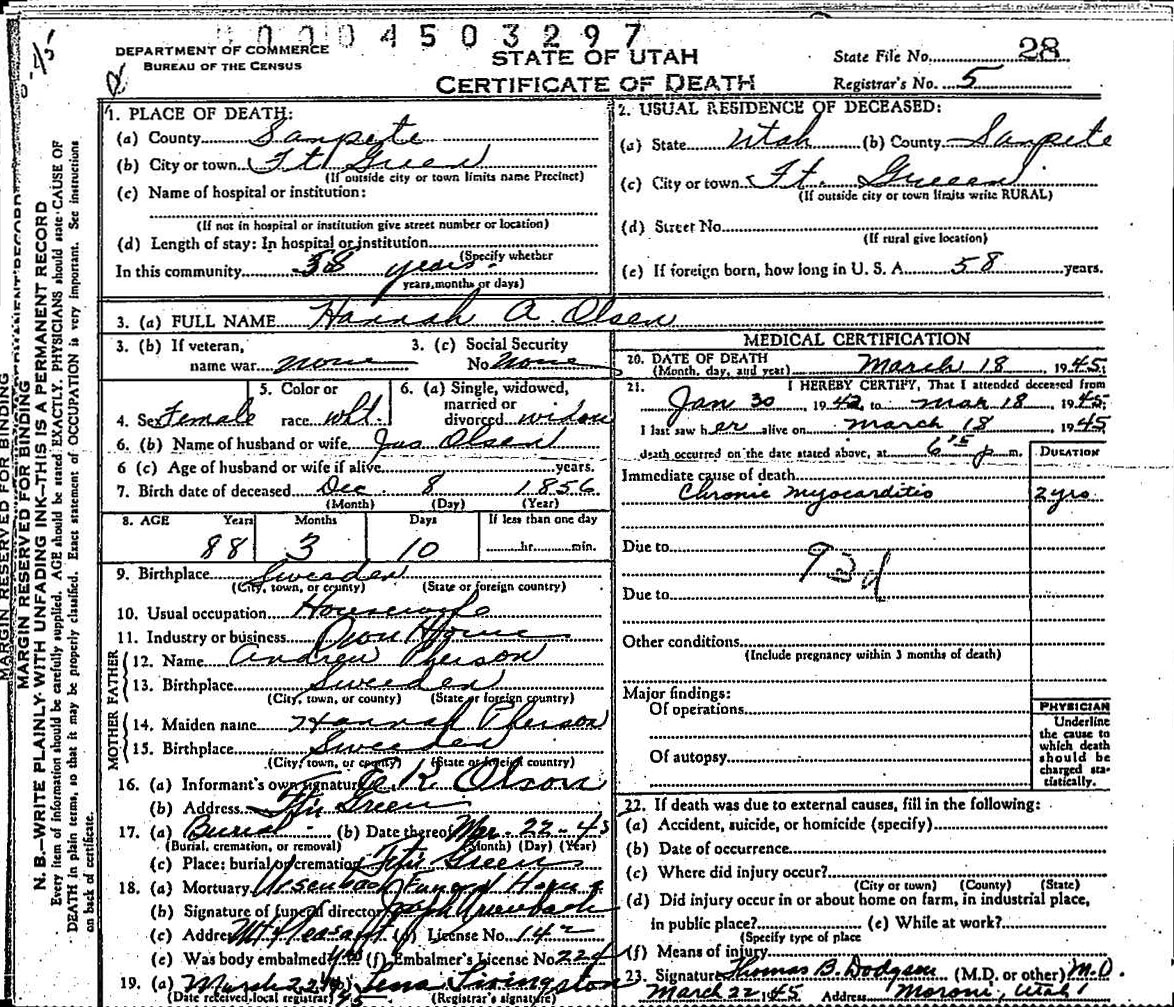 0004503297
DEPARTMENT OF COMMERCE
BUREAU OF THE CENSUS
STATE OF UTAH
CERTIFICATE OF DEATH
State File No. 28
Registrar's No. 5
MARGIN RESERVED FOR BINDING
N. B.—WRITE PLAINLY WITH UNFADING INK—THIS IS A PERMANENT RECORD
Every item of information should be carefully supplied. AGE should be stated EXACTLY. PHYSICIANS should state CAUSE OF
DEATH in plain terms, so that it may be properly classified. Exact statement of OCCUPATION is very important. See instructions
on back of certificate.
1. PLACE OF DEATH:
(a) County Sanpete
(b) City or town Ft Green
(If outside city or town limits name Precinct)
(c) Name of hospital or institution:
(If not in hospital or institution give street number or location)
(d) Length of stay: In hospital or institution
(Specify whether
In this community 58 years
years, months or days)
2. USUAL RESIDENCE OF DECEASED:
(a) State Utah (b) County Sanpete
(c) City or town Ft. Green
(If outside city or town limits write RURAL)
(d) Street No.
(If rural give location)
(e) If foreign born, how long in U. S. A. 58 years.
3. (a) FULL NAME Hannah A. Olsen
3. (b) If veteran,
name war none
3. (c) Social Security
No. None
4. Sex Female
5. Color or
race wht
6. (a) Single, widowed,
married or
divorced widow
6. (b) Name of husband or wife Jas Olsen
6 (c) Age of husband or wife if alive years.
7. Birth date of deceased Dec. 8 1856
(Month) (Day) (Year)
8. AGE Years Months Days If less than one day
88 3 10 hr. min.
9. Birthplace Sweeden
(City, town, or county) (State or foreign country)
10. Usual occupation Housewife
11. Industry or business Own Home
FATHER
12. Name Andrew Pherson
13. Birthplace Sweeden
(City, town, or county) (State or foreign country)
MOTHER
14. Maiden name Hannah Pherson
15. Birthplace Sweeden
(City, town, or county) (State or foreign country)
16. (a) Informant's own signature K. Olson
(b) Address Green
17. (a) Burial (b) Date thereof Mar. 22-45
(Burial, cremation, or removal) (Month) (Day) (Year)
(c) Place: burial or cremation Green
18. (a) Mortuary Ursenbach Funeral Home
(b) Signature of funeral director Ursenbach
(c) Address Mt Pleasant License No. 142
(e) Was body embalmed (f) Embalmer's License No. 224
19. (a) March 22 (b) Lena Livingston
(Date received local registrar) 45 (Registrar's signature)
MEDICAL CERTIFICATION
20. DATE OF DEATH
(Month, day, and year) March 18, 1945
21. I HEREBY CERTIFY, That I attended deceased from
Jan 30, 1942, to Mar 18, 1945;
I last saw her alive on March 18, 1945
death occurred on the date stated above, at 6 15 p m.
DURATION
Immediate cause of death
Chronic Myocarditis 2 yrs.
Due to
93d
Due to
Other conditions
(Include pregnancy within 3 months of death)
Major findings:
Of operations
Of autopsy
PHYSICIAN
Underline
the cause to
which death
should be
charged sta-
tistically.
22. If death was due to external causes, fill in the following:
(a) Accident, suicide, or homicide (specify)
(b) Date of occurrence
(c) Where did injury occur?
(City or town) (County) (State)
(d) Did injury occur in or about home on farm, in industrial place,
in public place? (e) While at work?
(Specify type of place
(f) Means of injury
23. Signature Thomas B. Dodgson (M.D. or other) M.D.
March 22 1945 Address Moroni, Utah